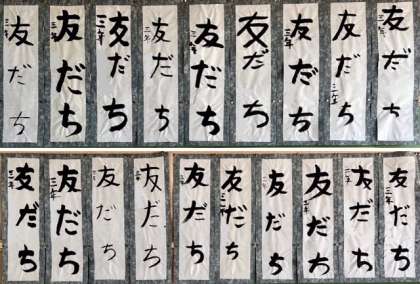 友だち
三年
友だち
三年
友だち
三年
友だち
三年
友だち
三年
友だち
友だち
三年
友だち
三年
友だち
三年
友だち
三年
友だち
三年
友だち
友だち
友だち
友だち
三年
友だち
友だち
三年
友だち
三年
友だち
三年